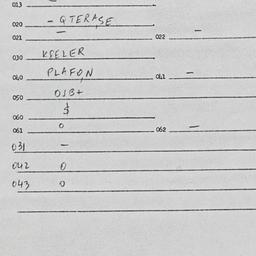 013
020 - QTERASE
021 — 022 —
030 KEELER
040 PLAFON 041 —
050 OJB+
$
060
061 0 062 —
031 —
042 0
043 0